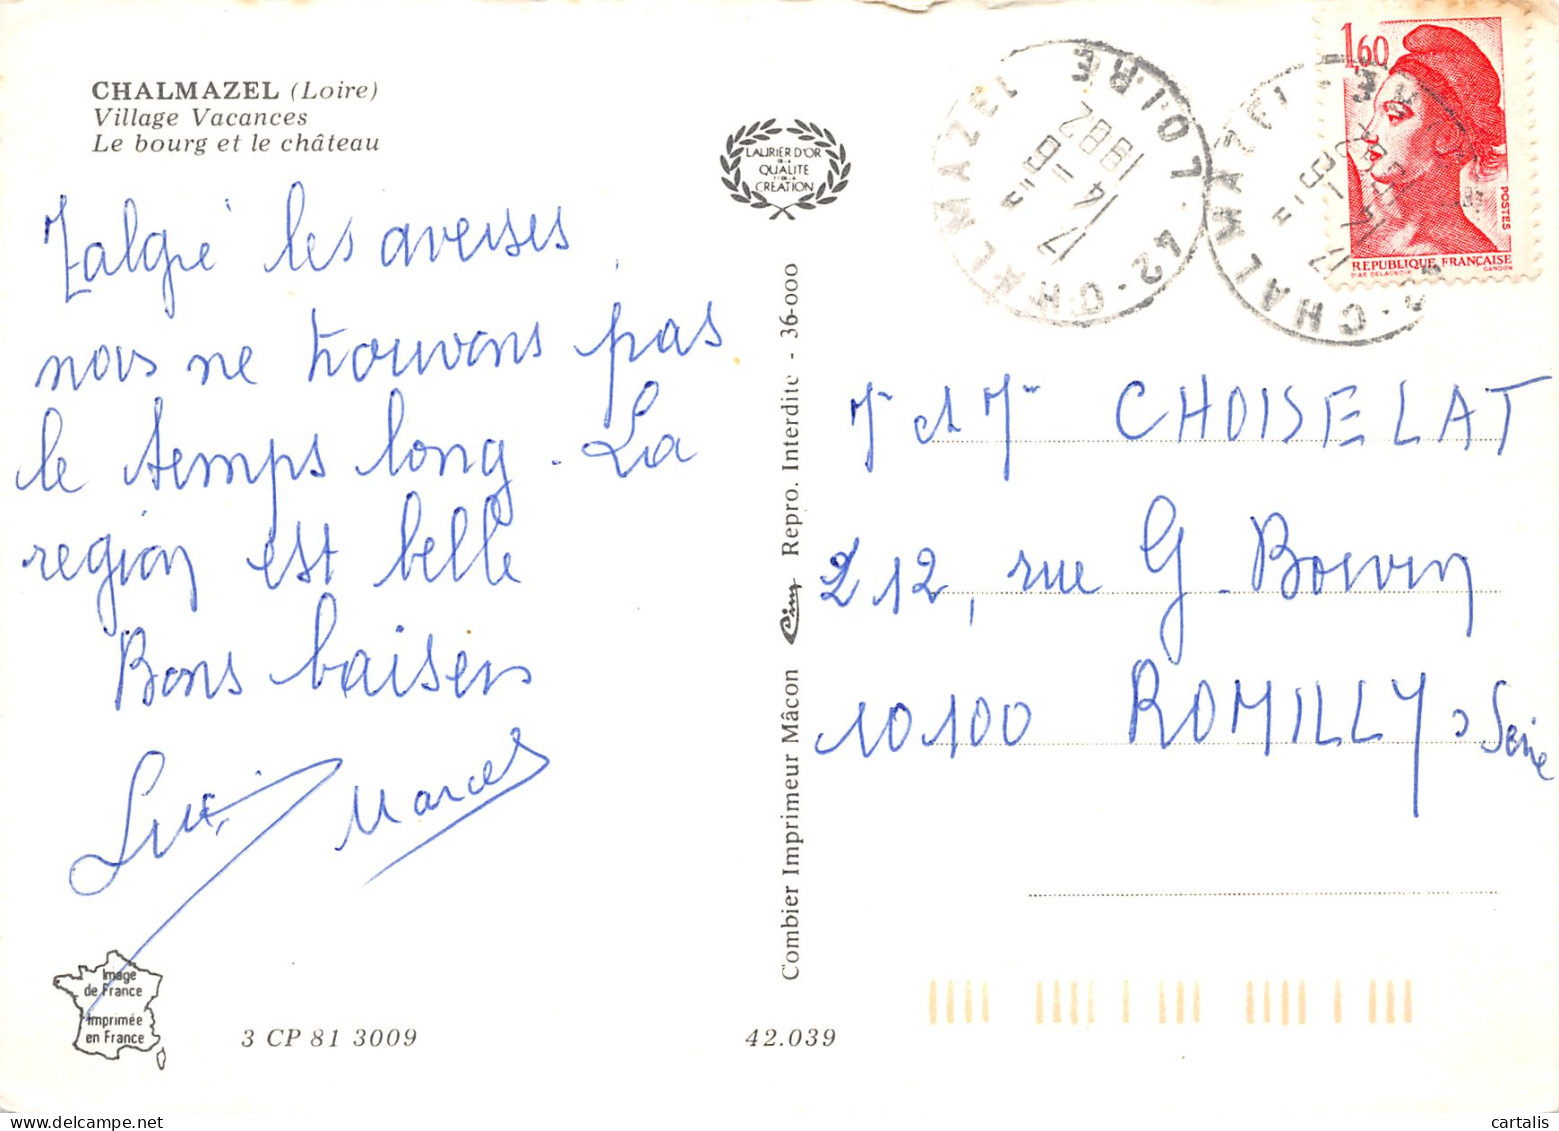 CHALMAZEL (Loire)
Village Vacances
Le bourg et le château
Malgré les averses
nous ne trouvons pas
le temps long. La
region est belle
Bons baisers
Marcel
Image
de France
Imprimée
en France
3 CP 81 3009
42.039
LAURIER D'OR
DE LA
QUALITE
ET DE LA
CRÉATION
Combier Imprimeur Mâcon Cim Repro. Interdite - 36-000
42-CHALMAZEL LOIRE
17 H
14 - 8
1982
1,60
POSTES
REPUBLIQUE FRANÇAISE
D'AP. DELACROIX GANDON
M et M CHOISELAT
212, rue G. Boivin
10100 ROMILLY s Seine
cartalis